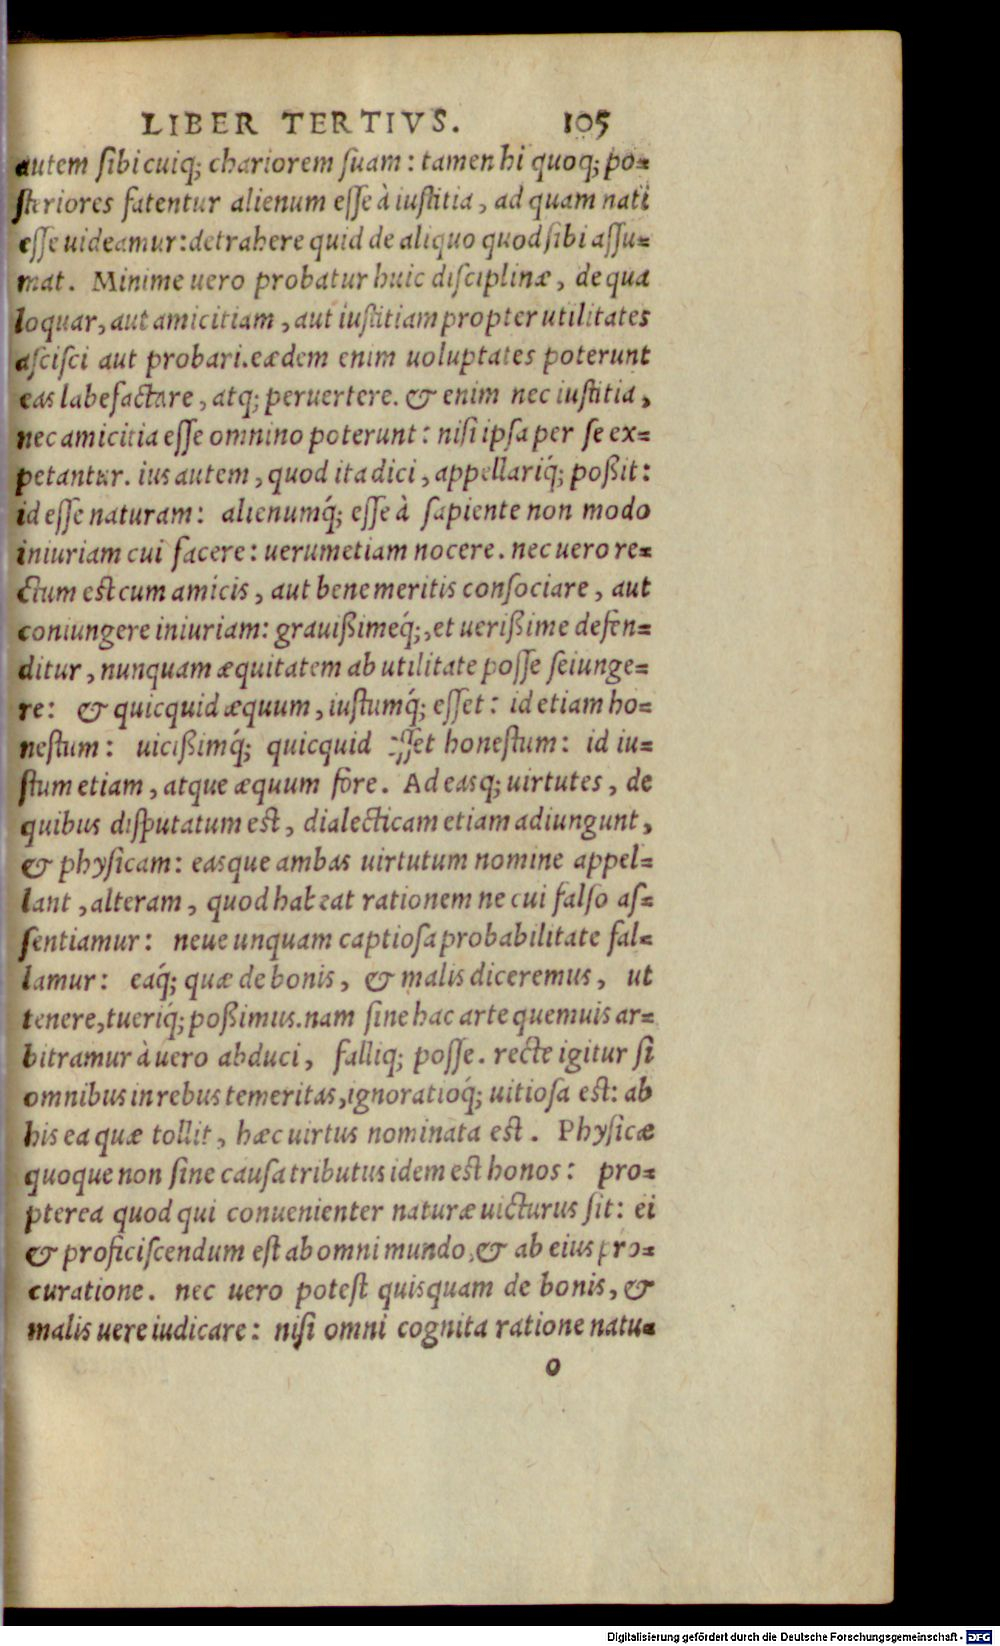 LIBER TERTIVS. 105
autem sibi cuiq; chariorem suam: tamen hi quoq; po-
steriores fatentur alienum esse à iustitia, ad quam nati
esse uideamur: detrahere quid de aliquo quod sibi assu-
mat. Minime uero probatur huic disciplinæ, de qua
loquar, aut amicitiam, aut iustitiam propter utilitates
ascisci aut probari. eædem enim uoluptates poterunt
eas labefactare, atq; peruertere. & enim nec iustitia,
nec amicitia esse omnino poterunt: nisi ipsa per se ex-
petantur. ius autem, quod ita dici, appellariq́; poßit:
id esse naturam: alienumq́; esse à sapiente non modo
iniuriam cui facere: uerumetiam nocere. nec uero re-
ctum est cum amicis, aut bene meritis consociare, aut
coniungere iniuriam: grauißimeq́;, et uerißime defen-
ditur, nunquam æquitatem ab utilitate posse seiunge-
re: & quicquid æquum, iustumq́; esset: id etiam ho-
nestum: uicißimq́; quicquid esset honestum: id iu-
stum etiam, atque æquum fore. Ad easq; uirtutes, de
quibus disputatum est, dialecticam etiam adiungunt,
& physicam: easque ambas uirtutum nomine appel-
lant, alteram, quod habeat rationem ne cui falso as-
sentiamur: neue unquam captiosa probabilitate fal-
lamur: eaq́; quæ de bonis, & malis diceremus, ut
tenere, tueriq́; poßimus. nam sine hac arte quemuis ar-
bitramur à uero abduci, falliq; posse. recte igitur si
omnibus in rebus temeritas, ignoratioq́; uitiosa est: ab
his ea quæ tollit, hæc uirtus nominata est. Physicæ
quoque non sine causa tributus idem est honos: pro-
pterea quod qui conuenienter naturæ uicturus sit: ei
& proficiscendum est ab omni mundo, & ab eius pro-
curatione. nec uero potest quisquam de bonis, &
malis uere iudicare: nisi omni cognita ratione natu-
o
Digitalisierung gefördert durch die Deutsche Forschungsgemeinschaft - DFG